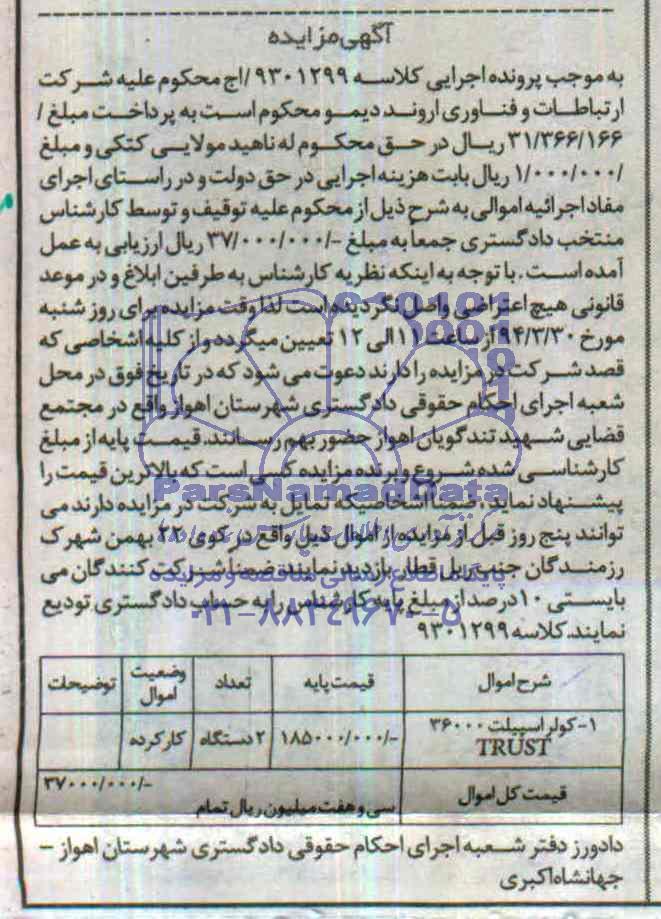 آگهی مزایده
به موجب پرونده اجرایی کلاسه ۹۳۰۱۲۹۹/اج محکوم علیه شرکت
ارتباطات و فناوری اروند دیمو محکوم است به پرداخت مبلغ /
۳۱/۳۶۶/۱۶۶ ریال در حق محکوم له ناهید مولایی کتکی و مبلغ
/۱/۰۰۰/۰۰۰ ریال بابت هزینه اجرایی در حق دولت و در راستای اجرای
مفاد اجرائیه اموالی به شرح ذیل از محکوم علیه توقیف و توسط کارشناس
منتخب دادگستری جمعا به مبلغ -/۳۷/۰۰۰/۰۰۰ ریال ارزیابی به عمل
آمده است. با توجه به اینکه نظریه کارشناس به طرفین ابلاغ و در موعد
قانونی هیچ اعتراضی واصل نگردیده است لذا وقت مزایده برای روز شنبه
مورخ ۹۴/۳/۳۰ از ساعت ۱۱ الی ۱۲ تعیین میگردد و از کلیه اشخاصی که
قصد شرکت در مزایده را دارند دعوت می شود که در تاریخ فوق در محل
شعبه اجرای احکام حقوقی دادگستری شهرستان اهواز واقع در مجتمع
قضایی شهید تندگویان اهواز حضور بهم رسانند. قیمت پایه از مبلغ
کارشناسی شده شروع و برنده مزایده کسی است که بالاترین قیمت را
پیشنهاد نماید. ضمنا اشخاصیکه تمایل به شرکت در مزایده دارند می
توانند پنج روز قبل از مزایده از اموال ذیل واقع در کوی ۲۲ بهمن شهرک
رزمندگان جنب ریل قطار بازدید نمایند ضمنا شرکت کنندگان می
بایستی ۱۰ درصد از مبلغ پایه کارشناس را به حساب دادگستری تودیع
نمایند. کلاسه ۹۳۰۱۲۹۹
شرح اموال قیمت پایه تعداد وضعیت اموال توضیحات
۱- کولر اسپیلت ۳۶۰۰۰ TRUST -/۱۸۵۰۰۰/۰۰۰ ۲ دستگاه کارکرده
قیمت کل اموال -/۳۷۰۰۰/۰۰۰
سی و هفت میلیون ریال تمام
دادورز دفتر شعبه اجرای احکام حقوقی دادگستری شهرستان اهواز –
جهانشاه اکبری
ParsNamadData
پایگاه اطلاع رسانی مناقصه و مزایده
۰۲۱-۸۸۳۴۹۶۷۰-۵